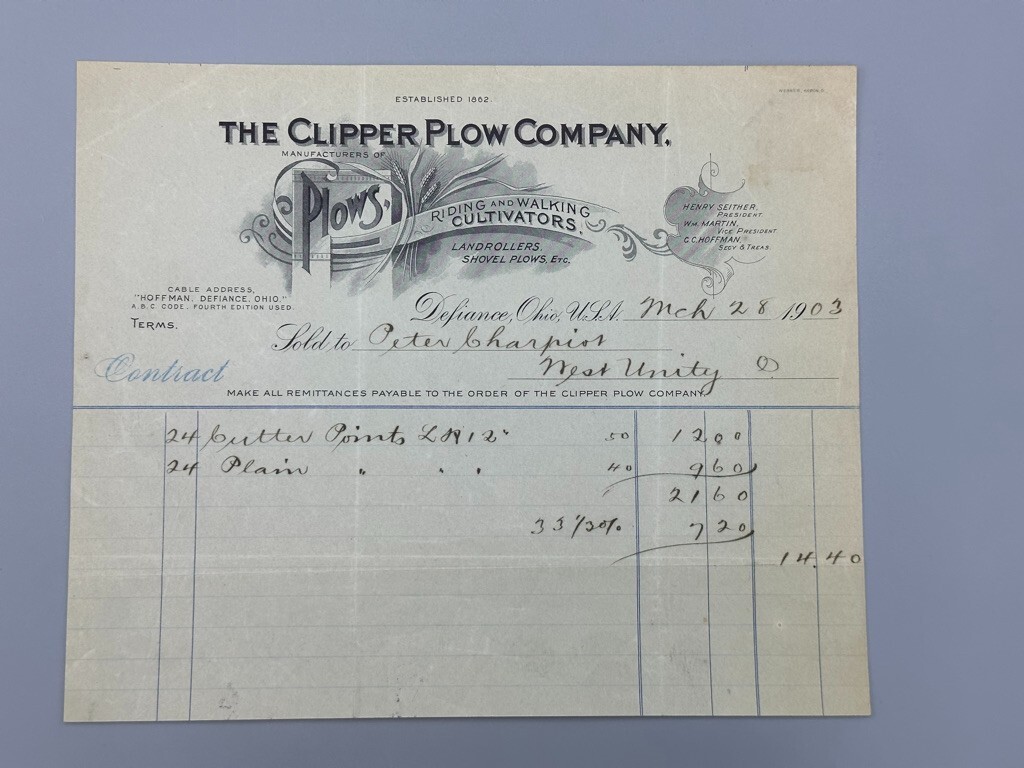 ESTABLISHED 1862.
THE CLIPPER PLOW COMPANY.
MANUFACTURERS OF
PLOWS.
RIDING AND WALKING
CULTIVATORS.
LANDROLLERS,
SHOVEL PLOWS, ETC.
HENRY SEITHER,
PRESIDENT.
WM. MARTIN,
VICE PRESIDENT
C.C. HOFFMAN,
SECY & TREAS.
CABLE ADDRESS,
"HOFFMAN, DEFIANCE, OHIO."
A.B.C. CODE, FOURTH EDITION USED.
Defiance, Ohio, U.S.A. Mch 28 1903
TERMS.
Sold to Peter Charpiot
West Unity O
Contract
MAKE ALL REMITTANCES PAYABLE TO THE ORDER OF THE CLIPPER PLOW COMPANY.
24 Cutter Points L R 12" 50 12 00
24 Plain " " " 40 9 60
21 60
33 1/3 0% 7 20
14.40